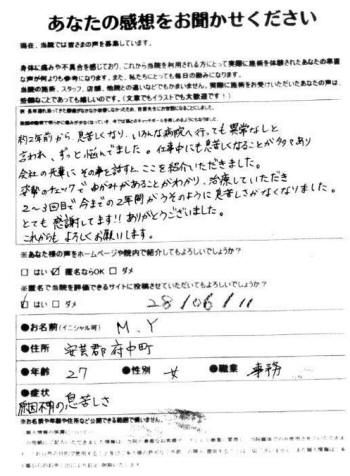 あなたの感想をお聞かせください
現在、当院では皆さまの声を募集しています。
身体に痛みや不具合を感じており、これから当院を利用される方にとって実際に施術を体験されたあなたの率直
な声が何よりも参考になります。また、私たちにとっても毎日の励みになります。
当院の施術、スタッフ、店舗、他院との違いなどでもかまいません。実際に施術をお受けいただいたあなたの声は
些細なことであっても嬉しいのです。（文章でもイラストでも大歓迎です！）
約2年前から息苦しくなり、いろんな病院へ行っても異常なしと
言われ、ずっと悩んでました。仕事中にも息苦しくなることが多々あり
会社の先輩にその事を話すと、ここを紹介いただきました。
姿勢のチェックでゆがみがあることがわかり、治療していただき
2〜3回目で今までの2年間がうそのように息苦しさがなくなりました。
とても感謝してます!! ありがとうございました。
これからもよろしくお願いします。
※あなた様の声をホームページや院内で紹介してもよろしいでしょうか？
□ はい ☑ 匿名ならOK □ ダメ
※匿名で当院を評価できるサイトに投稿させていただいてもよろしいでしょうか？
☑ はい □ ダメ 28/06/11
●お名前（イニシャル可） M.Y
●住所 安芸郡府中町
●年齢 27 ●性別 女 ●職業 事務
●症状
原因不明の息苦しさ
※お名前や年齢や住所など公開できる範囲で構いません。